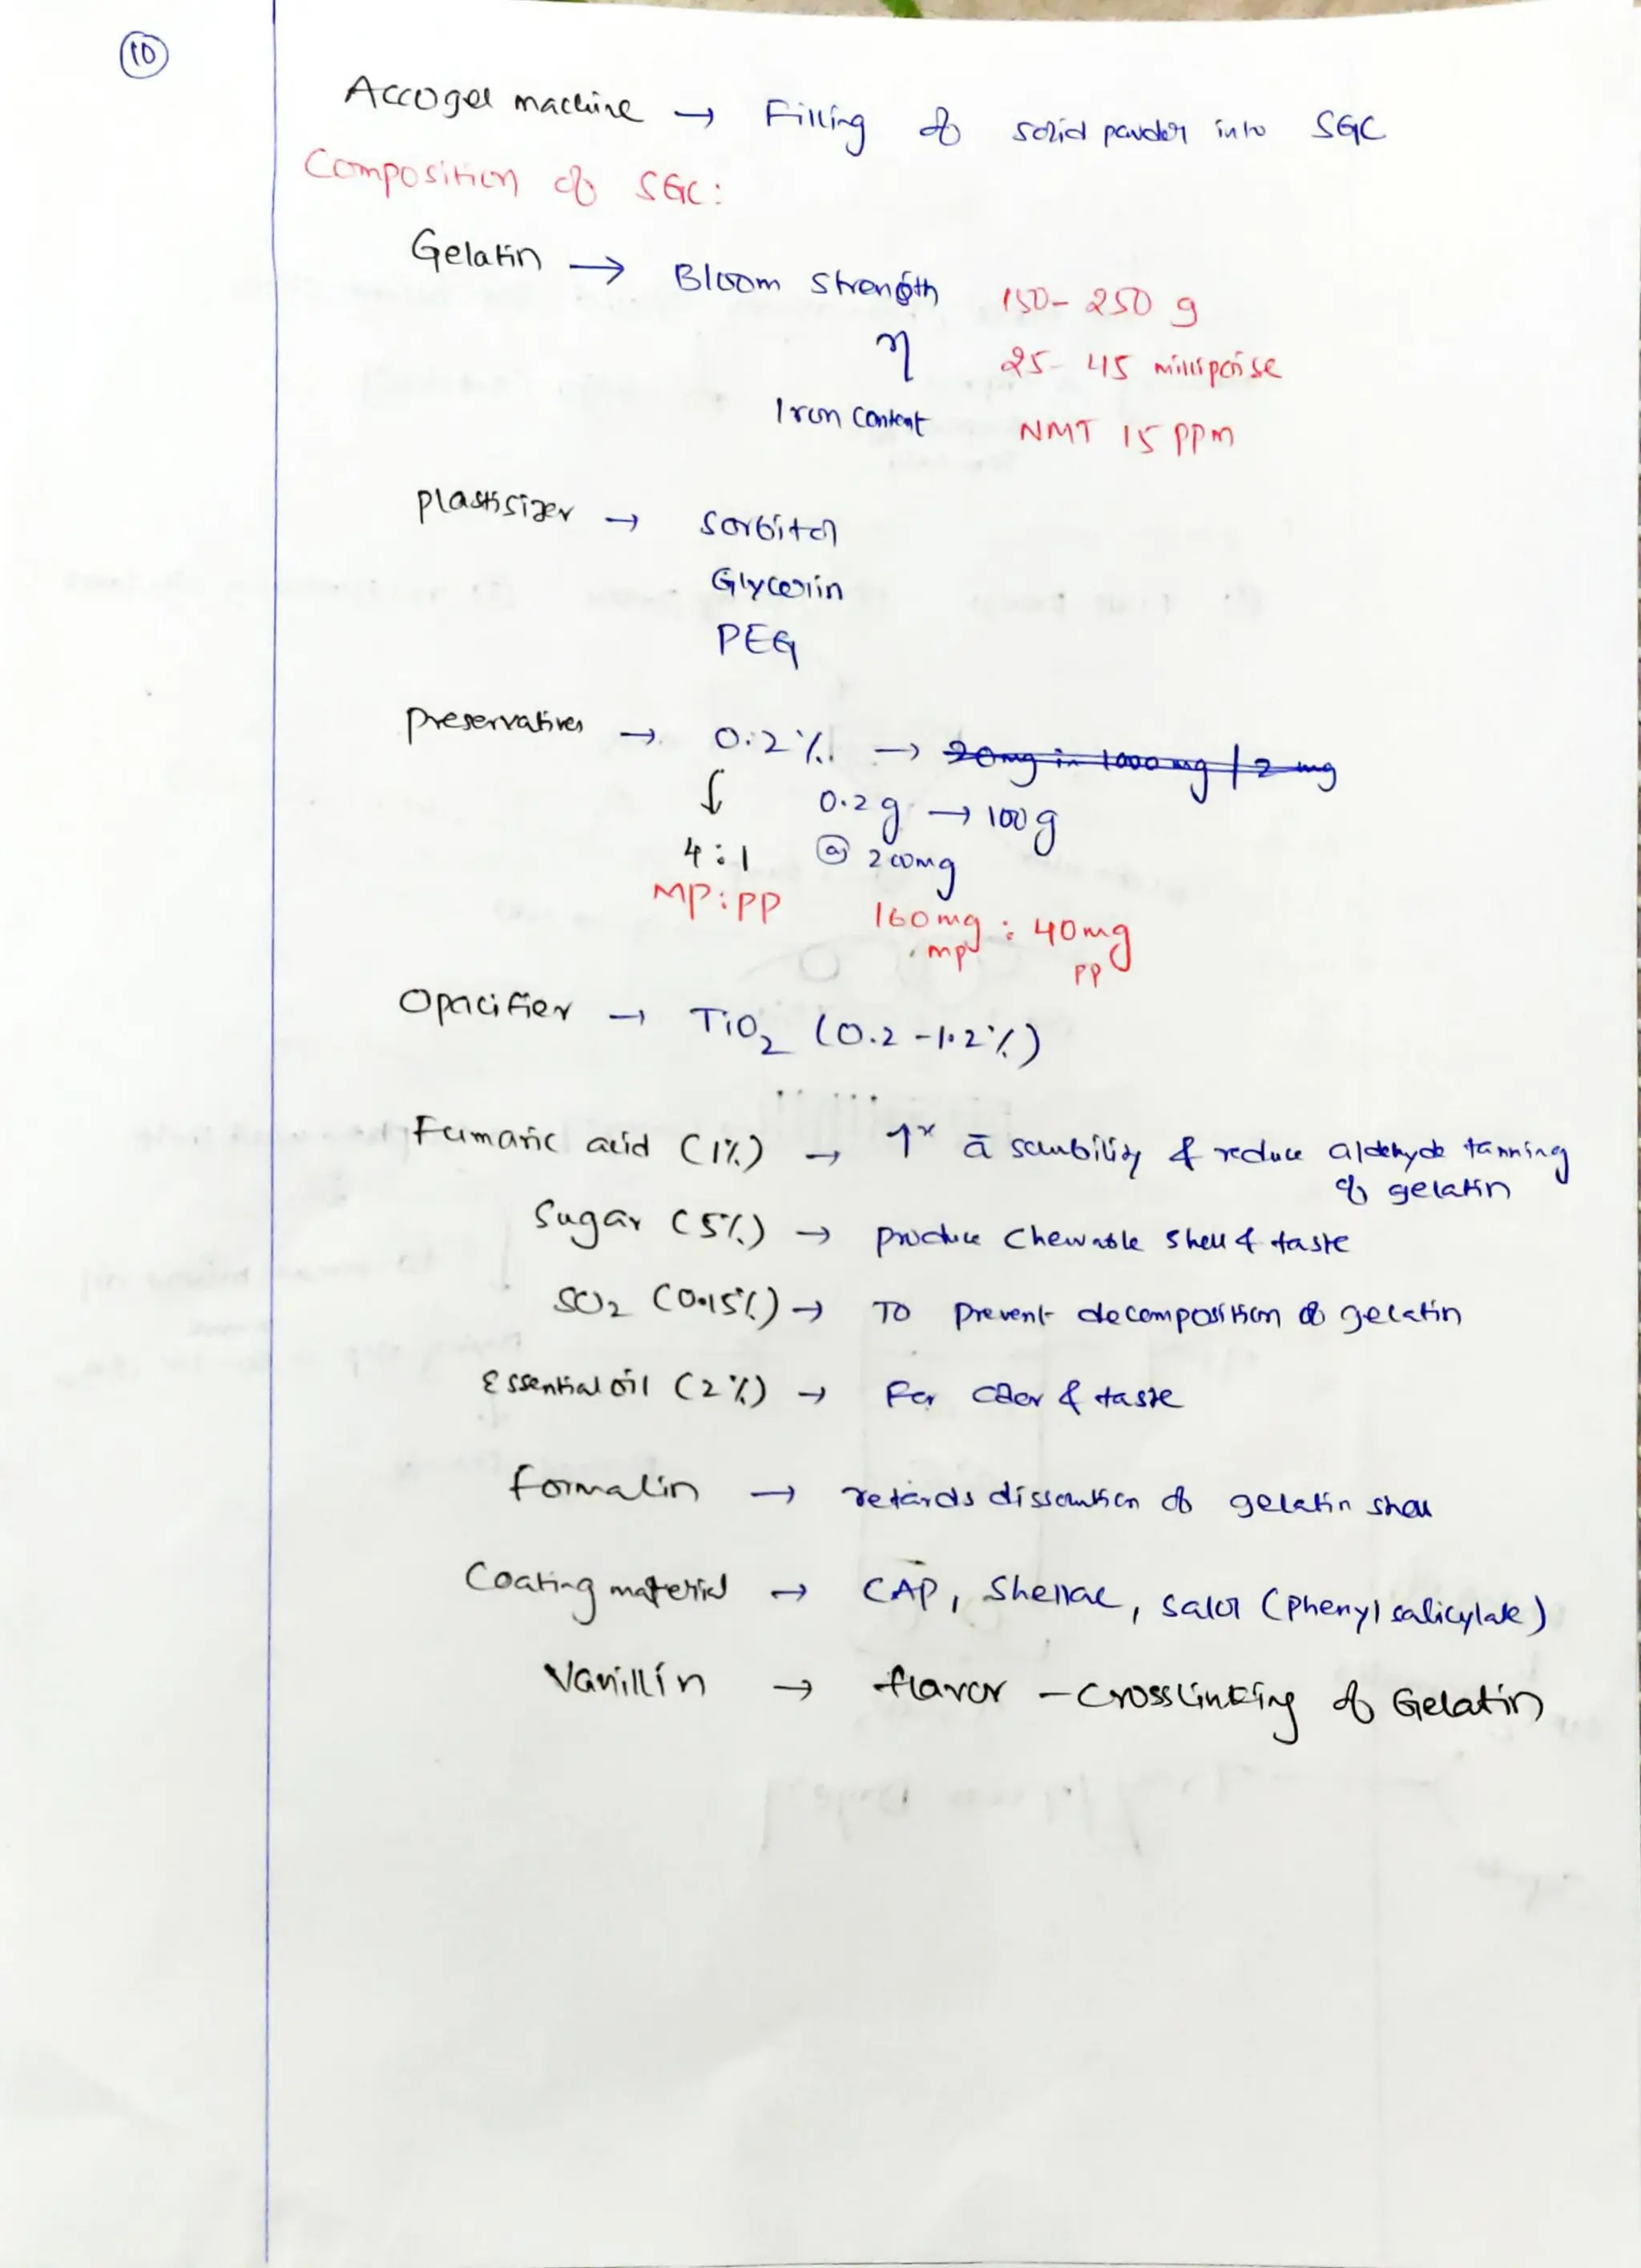 10
Accogel machine → Filling of solid powder into SGC
Composition of SGC:
Gelatin → Bloom strength 150-250 g
η 25-45 millipoise
Iron content NMT 15 ppm
plastisizer → sorbitol
Glycerin
PEG
preservatives → 0.2% → 20mg in 1000mg / 2 mg
↓ 0.2g → 100g
4:1 @ 200mg
MP:PP 160mg : 40mg
mp PP
Opacifier → TiO2 (0.2-1.2%)
Fumaric acid (1%) → ↑x ā solubility & reduce aldehyde tanning
of gelatin
Sugar (5%) → produce chewable shell & taste
SO2 (0.15%) → To prevent decomposition of gelatin
Essential oil (2%) → For odor & taste
formalin → retards dissolution of gelatin shell
Coating material → CAP, Shellac, salol (phenyl salicylate)
Vanillin → flavor - crosslinking of Gelatin